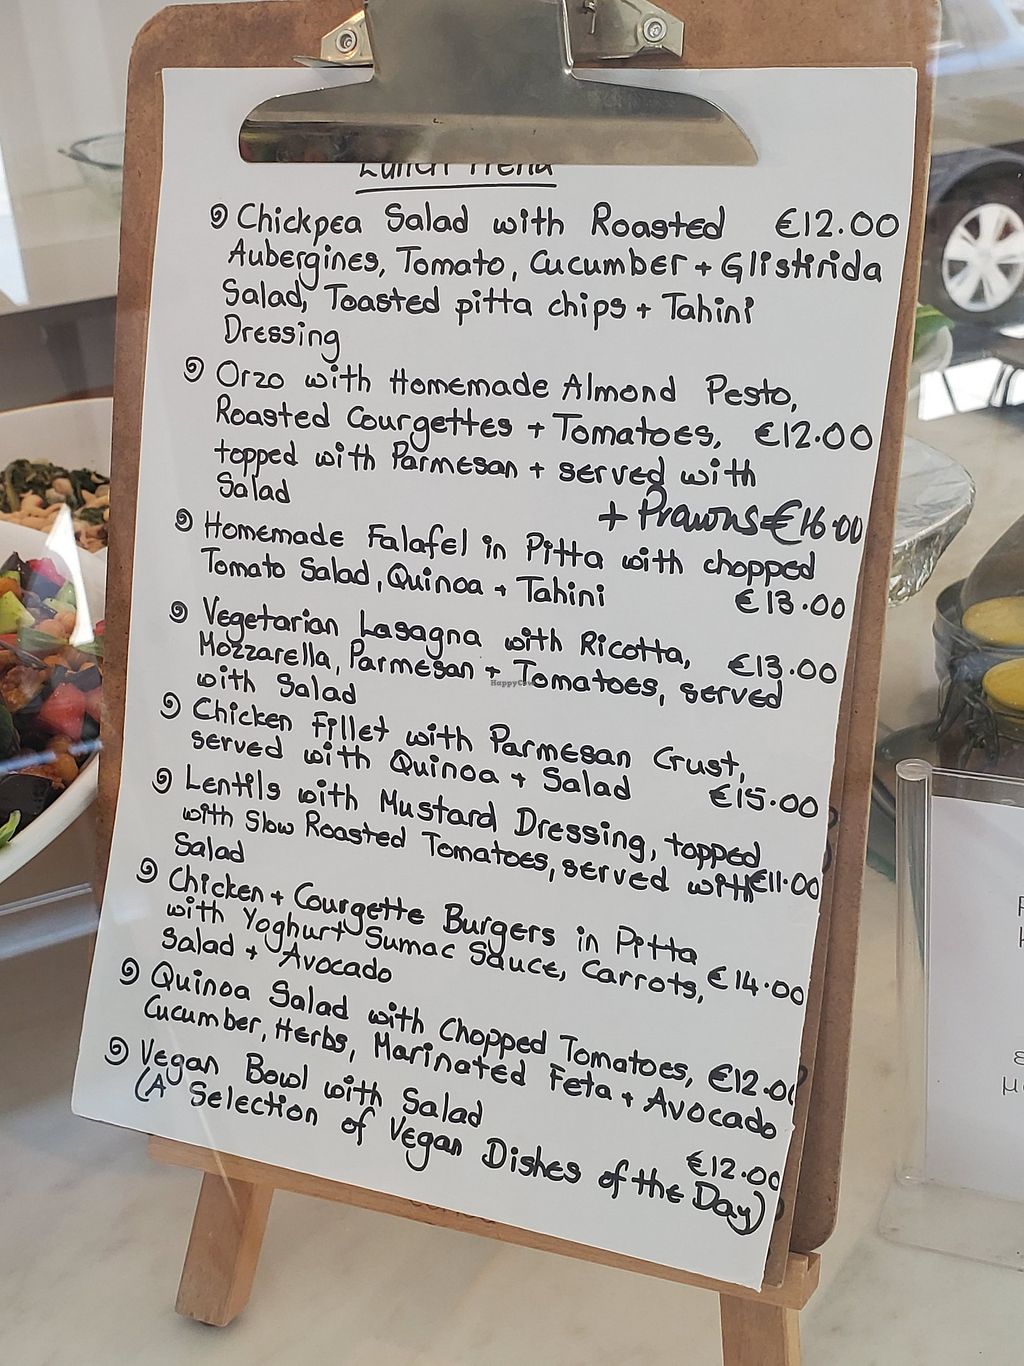 Lunch Menu
Chickpea Salad with Roasted €12.00
Aubergines, Tomato, Cucumber + Glistirida
Salad, Toasted pitta chips + Tahini
Dressing
Orzo with Homemade Almond Pesto,
Roasted Courgettes + Tomatoes, €12.00
topped with Parmesan + served with
Salad
+ Prawns €16.00
Homemade Falafel in Pitta with chopped
Tomato Salad, Quinoa + Tahini €13.00
Vegetarian Lasagna with Ricotta, €13.00
Mozzarella, Parmesan + Tomatoes, served
with Salad
HappyCow
Chicken Fillet with Parmesan Crust,
served with Quinoa + Salad €15.00
Lentils with Mustard Dressing, topped
with Slow Roasted Tomatoes, served with €11.00
Salad
Chicken + Courgette Burgers in Pitta
with Yoghurt Sumac Sauce, Carrots, €14.00
Salad + Avocado
Quinoa Salad with Chopped Tomatoes, €12.00
Cucumber, Herbs, Marinated Feta + Avocado
Vegan Bowl with Salad €12.00
(A Selection of Vegan Dishes of the Day)